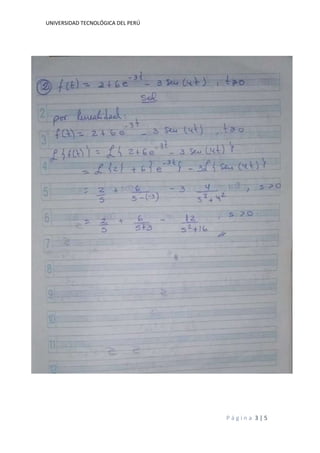 UNIVERSIDAD TECNOLÓGICA DEL PERÚ
② f(t) = 2+6e^{-3t} - 3 sen (4t) , t≥0
Sol
2 por linealidad:
3 f(t) = 2+6e^{-3t} - 3 sen (4t) , t≥0
ℒ{f(t)} = ℒ{2+6e^{-3t} - 3 sen (4t)}
4 = ℒ{2} + 6{e^{-3t}} - 3ℒ{sen (4t)}
5 = 2/s + 6/(s-(-3)) - 3 4/(s²+4²) , s>0
6 = 2/s + 6/(s+3) - 12/(s²+16) , s>0
7
8
9
10
11
12
Página 3 | 5